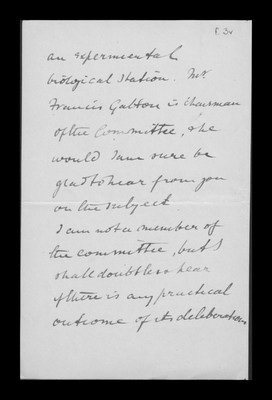 an experimental
biological station. Mr
Francis Galton is Chairman
of the Committee, & he
would I am sure be
glad to hear from you
on the subject
I am not a member of
the committee, but I
shall doubtless hear
if there is any practical
outcome of its deliberations